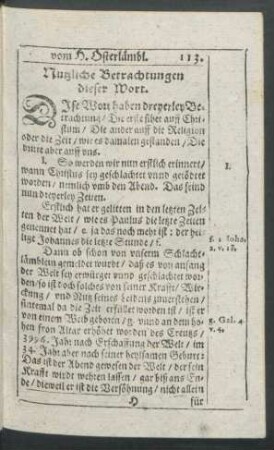 vom H. Osterlämbl. 113.
Nutzliche Betrachtungen
dieser Wort.
Dise Wort haben dreyerley Be-
trachtung / Die erste siher auff Chri-
stum / Die ander auff die Religion
oder die Zeit / wie es damalen gestanden / Die
dritte aber auff vns.
I. So werden wir nun erstlich erinnert / I.
wann Christus sey geschlachtet vnnd getödtet
worden / nemlich vmb den Abend. Das seind
nun dreyerley Zeiten.
Erstlich hat er gelitten in den letzten Zei-
ten der Welt / wie es Paulus die letzte Zeiten
genennet hat / e. ja das noch mehr ist: der hei-
lige Johannes die letzte Stunde / f. f. 1. Joha.
2. v. 18.
Dann ob schon von vnserm Schlacht-
lämblein gemeldet wurde / daß es von anfang
der Welt sey erwürget vnnd geschlachtet wor-
den / so ist doch solches von seiner Krafft / Wir-
ckung / vnd Nutz seines leidens zuverstehen /
sintemal da die Zeit erfüllet worden ist / ist er
von einem Weib geboren / g. vnnd an dem ho- g. Gal. 4.
hen fron Altar erhöhet worden des Creutzs / v. 4.
3996. Jahr nach Erschaffung der Welt / im
34. Jahr aber nach seiner heylsamen Geburt:
Das ist der Abend gewesen der Welt / der sein
Krafft wirdt wehren lassen / gar biß ans En-
de / dieweil er ist die Versöhnung / nicht allein
H für